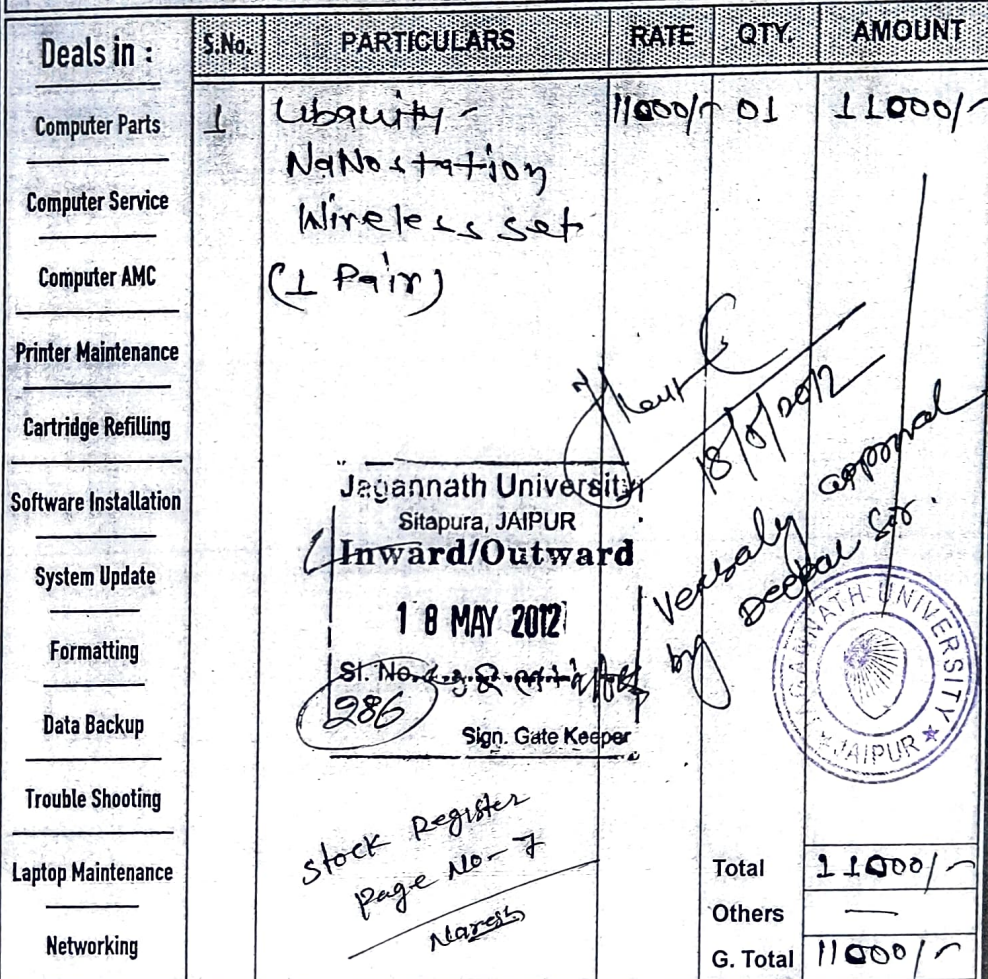 Deals in :
Computer Parts
Computer Service
Computer AMC
Printer Maintenance
Cartridge Refilling
Software Installation
System Update
Formatting
Data Backup
Trouble Shooting
Laptop Maintenance
Networking
S.No. PARTICULARS RATE QTY. AMOUNT
1 Ubquity- 11000/- 01 11000/-
NaNostation
Wireless set
(1 Pair)
18/5/2012
Verbaly approval
by Deepak Sir.
Jagannath University
Sitapura, JAIPUR
Inward/Outward
18 MAY 2012
Sl. No.
286
Sign. Gate Keeper
JAGANNATH UNIVERSITY
JAIPUR
Stock Register
page No-7
Naresh
Total 11000/-
Others —
G. Total 11000/-